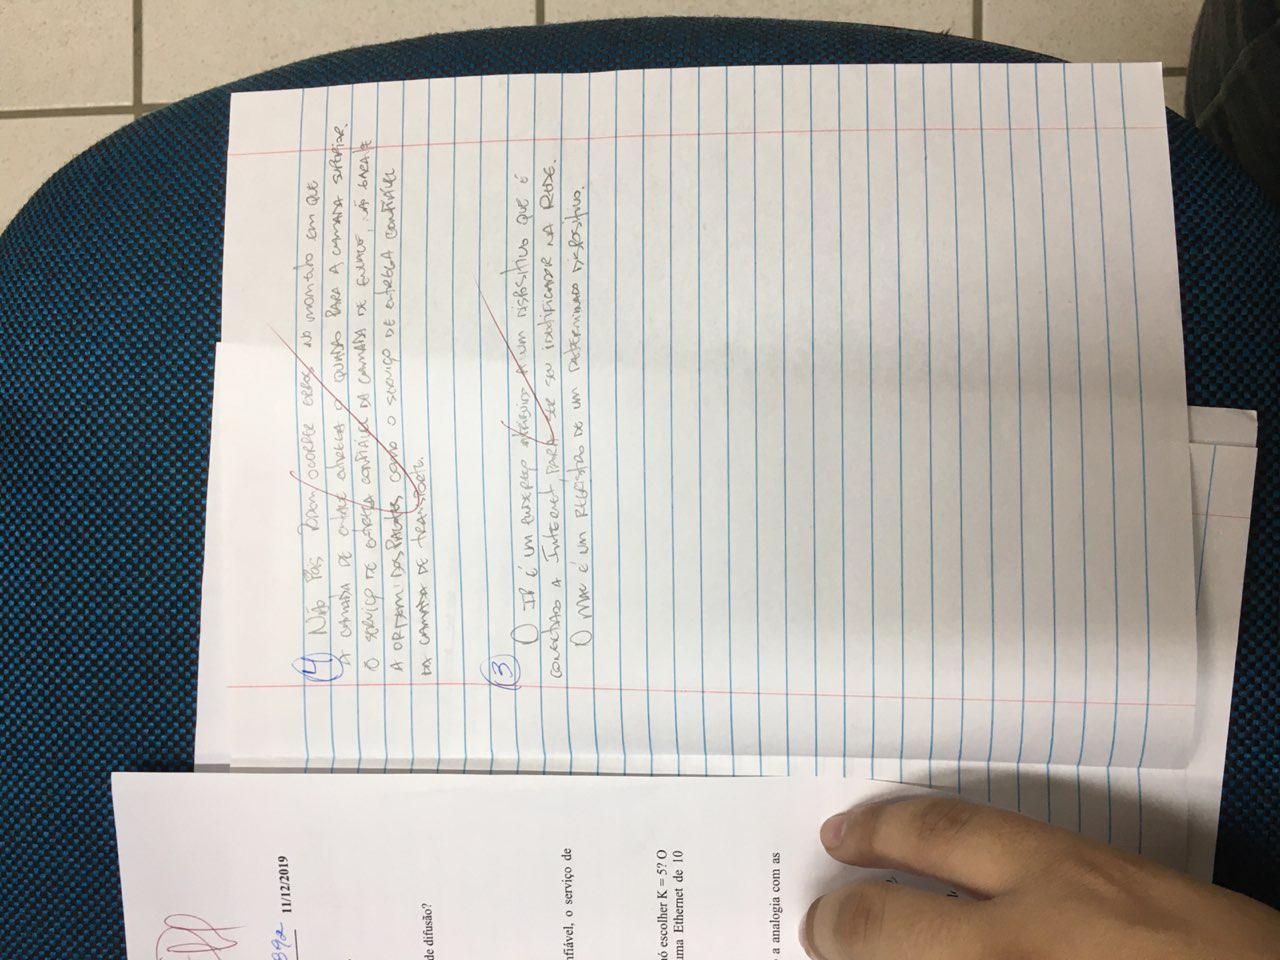 11/12/2019
de difusão?
nfiável, o serviço de
nó escolher K = 5? O
uma Ethernet de 10
a analogia com as
4 Não pois podem ocorrer erros no momento em que
a camada de enlace entrega o quadro para a camada superior.
O serviço de entrega confiável da camada de enlace, não garante
a ordem dos pacotes como o serviço de entrega confiável
da camada de transporte.
3
O IP é um endereço atribuído a um dispositivo que é
conectado a Internet, para ser seu identificador na rede.
O MAC é um registro de um determinado dispositivo.